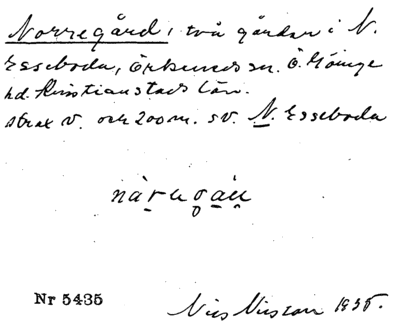 Norregård, två gårdar i N.
Esseboda, Örkeneds sn. Ö. Göinge
hd. Kristianstads län.
strax v. och 200 m. sv. N. Esseboda
Nr 5435
Nils Nilsson 1935.